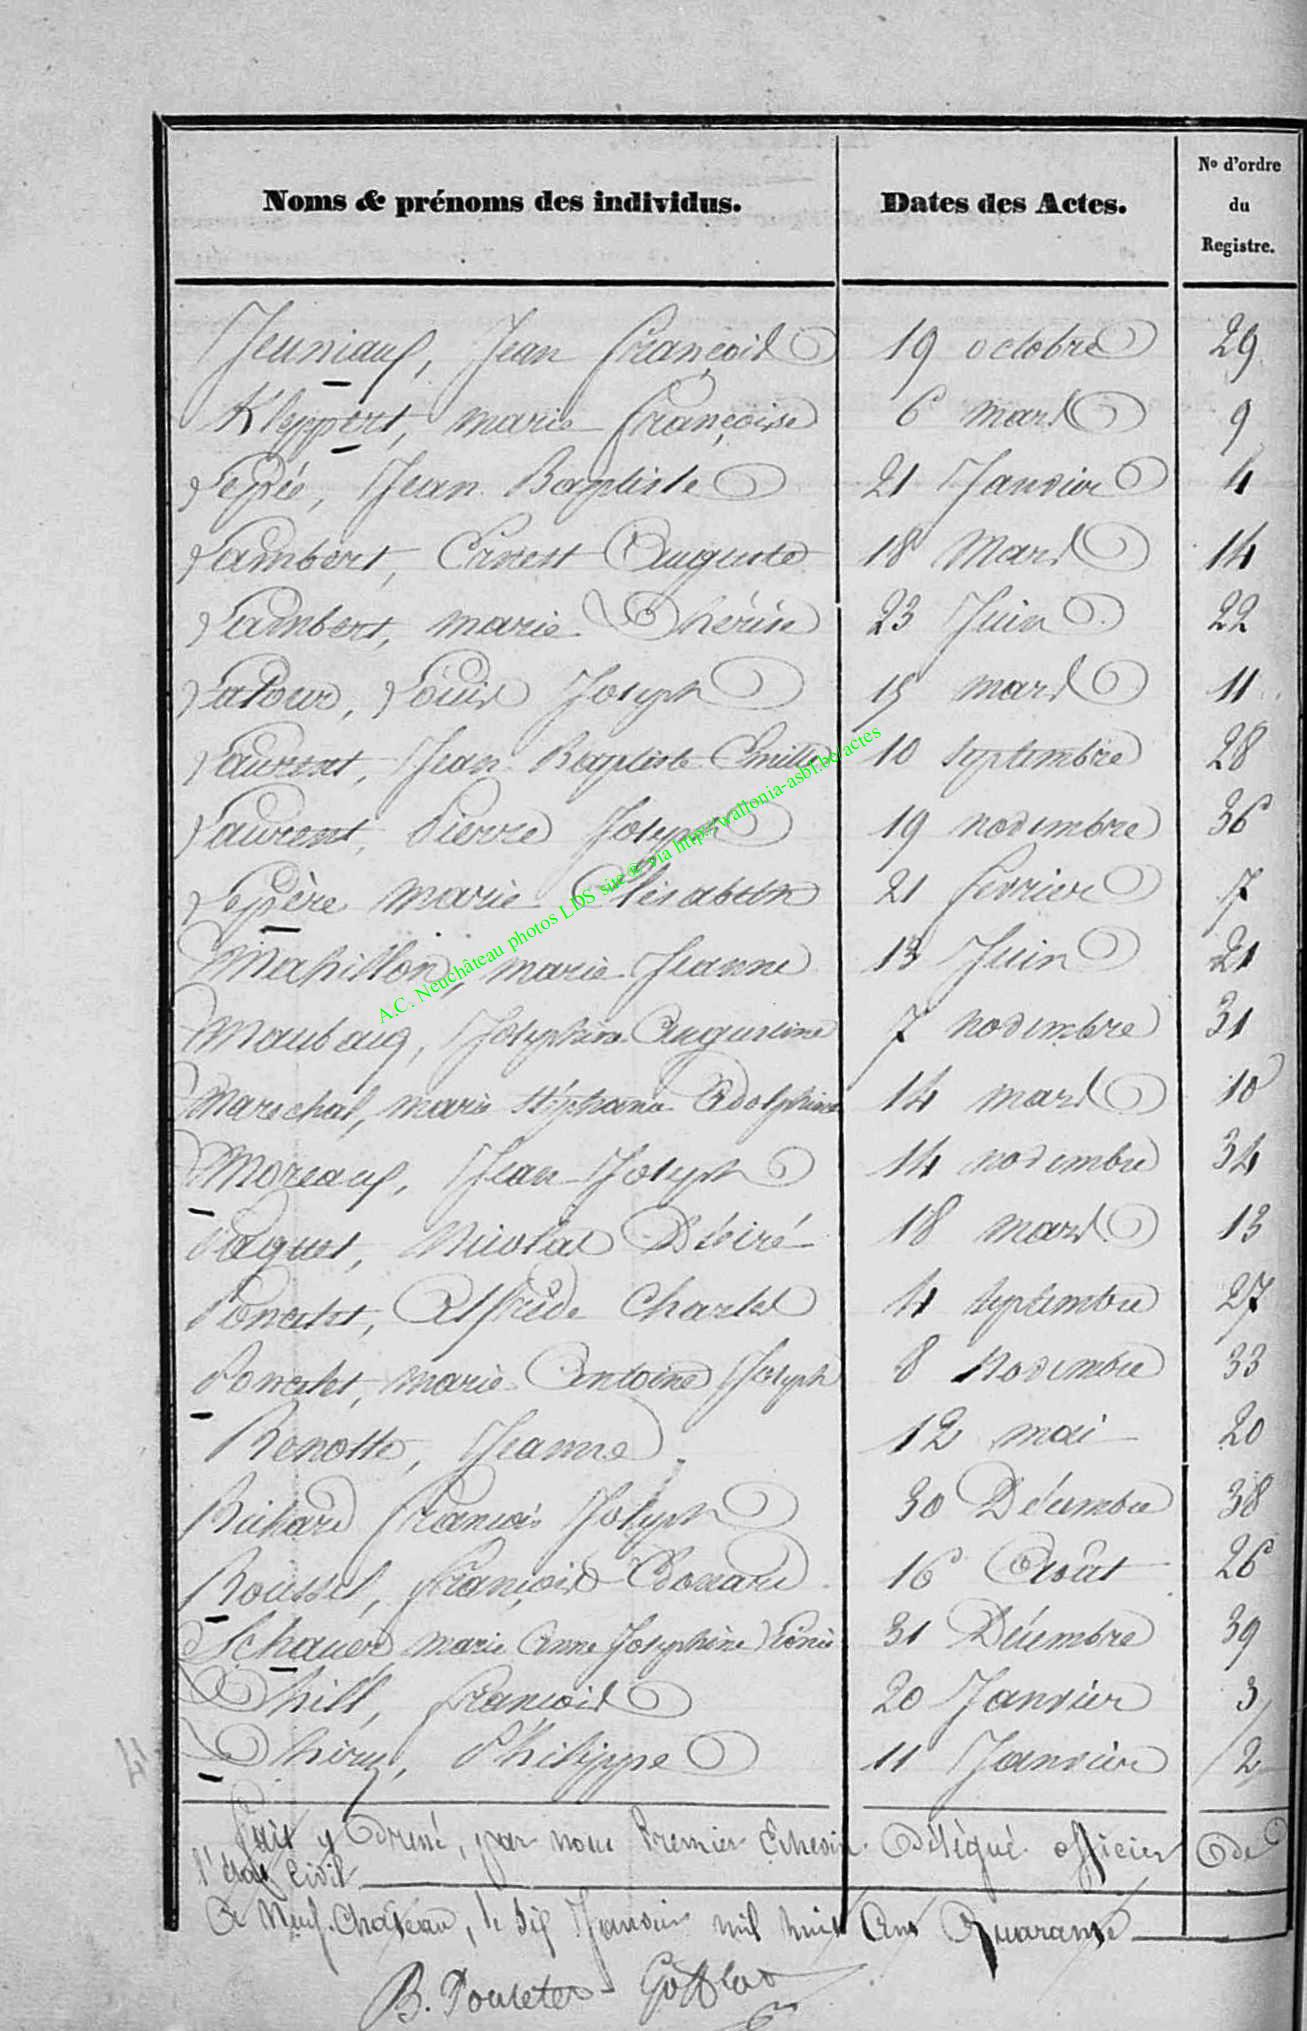 Noms & prénoms des individus. Dates des Actes. No d'ordre du Registre.
Jeuniaux, Jean François 19 octobre 29
Kleppert, marie françoise 6 mars 9
Jean Baptiste 21 Janvier 4
Lambert, Ernest Auguste 18 Mars 14
Lambert, marie Thérèse 23 Juin 22
Latour, Louis Joseph 15 mars 11
Laurent, Jean Baptiste Emille 10 Septembre 28
Laurent, Pierre Joseph 19 novembre 36
Lepère marie Elisabeth 21 fevrier 7
Mahillon, marie Jeanne 13 Juin 21
Maubaug, Josephine Augustine 7 novembre 31
Marechal, marie Stéphanie Adolphine 14 mars 10
Moreaux, Jean Joseph 14 novembre 34
Paquet, Nicolas Désiré 18 mars 13
Poncelet, Alfrède Charles 4 Septembre 27
Poncelet, marie Antoine Joseph 8 Novembre 33
Renotte, Jeanne 12 mai 20
Richard françois Joseph 30 Décembre 38
Roussel, françois Edouard 16 Août 26
Schauer marie Anne Josephine Léonie 31 Décembre 39
Thill, françois 20 Janvier 3
Thiry, Philippe 11 Janvier 2
Fait y Dressé, par nous Premier Echevin Délégué officier De
l'état Civil
A Neuf-Château, le Janvier mil huit Cent Quarante
B. Pouletes
A.C. Neuchâteau photos LDS site @ via http://wallonia-asbl.be/actes